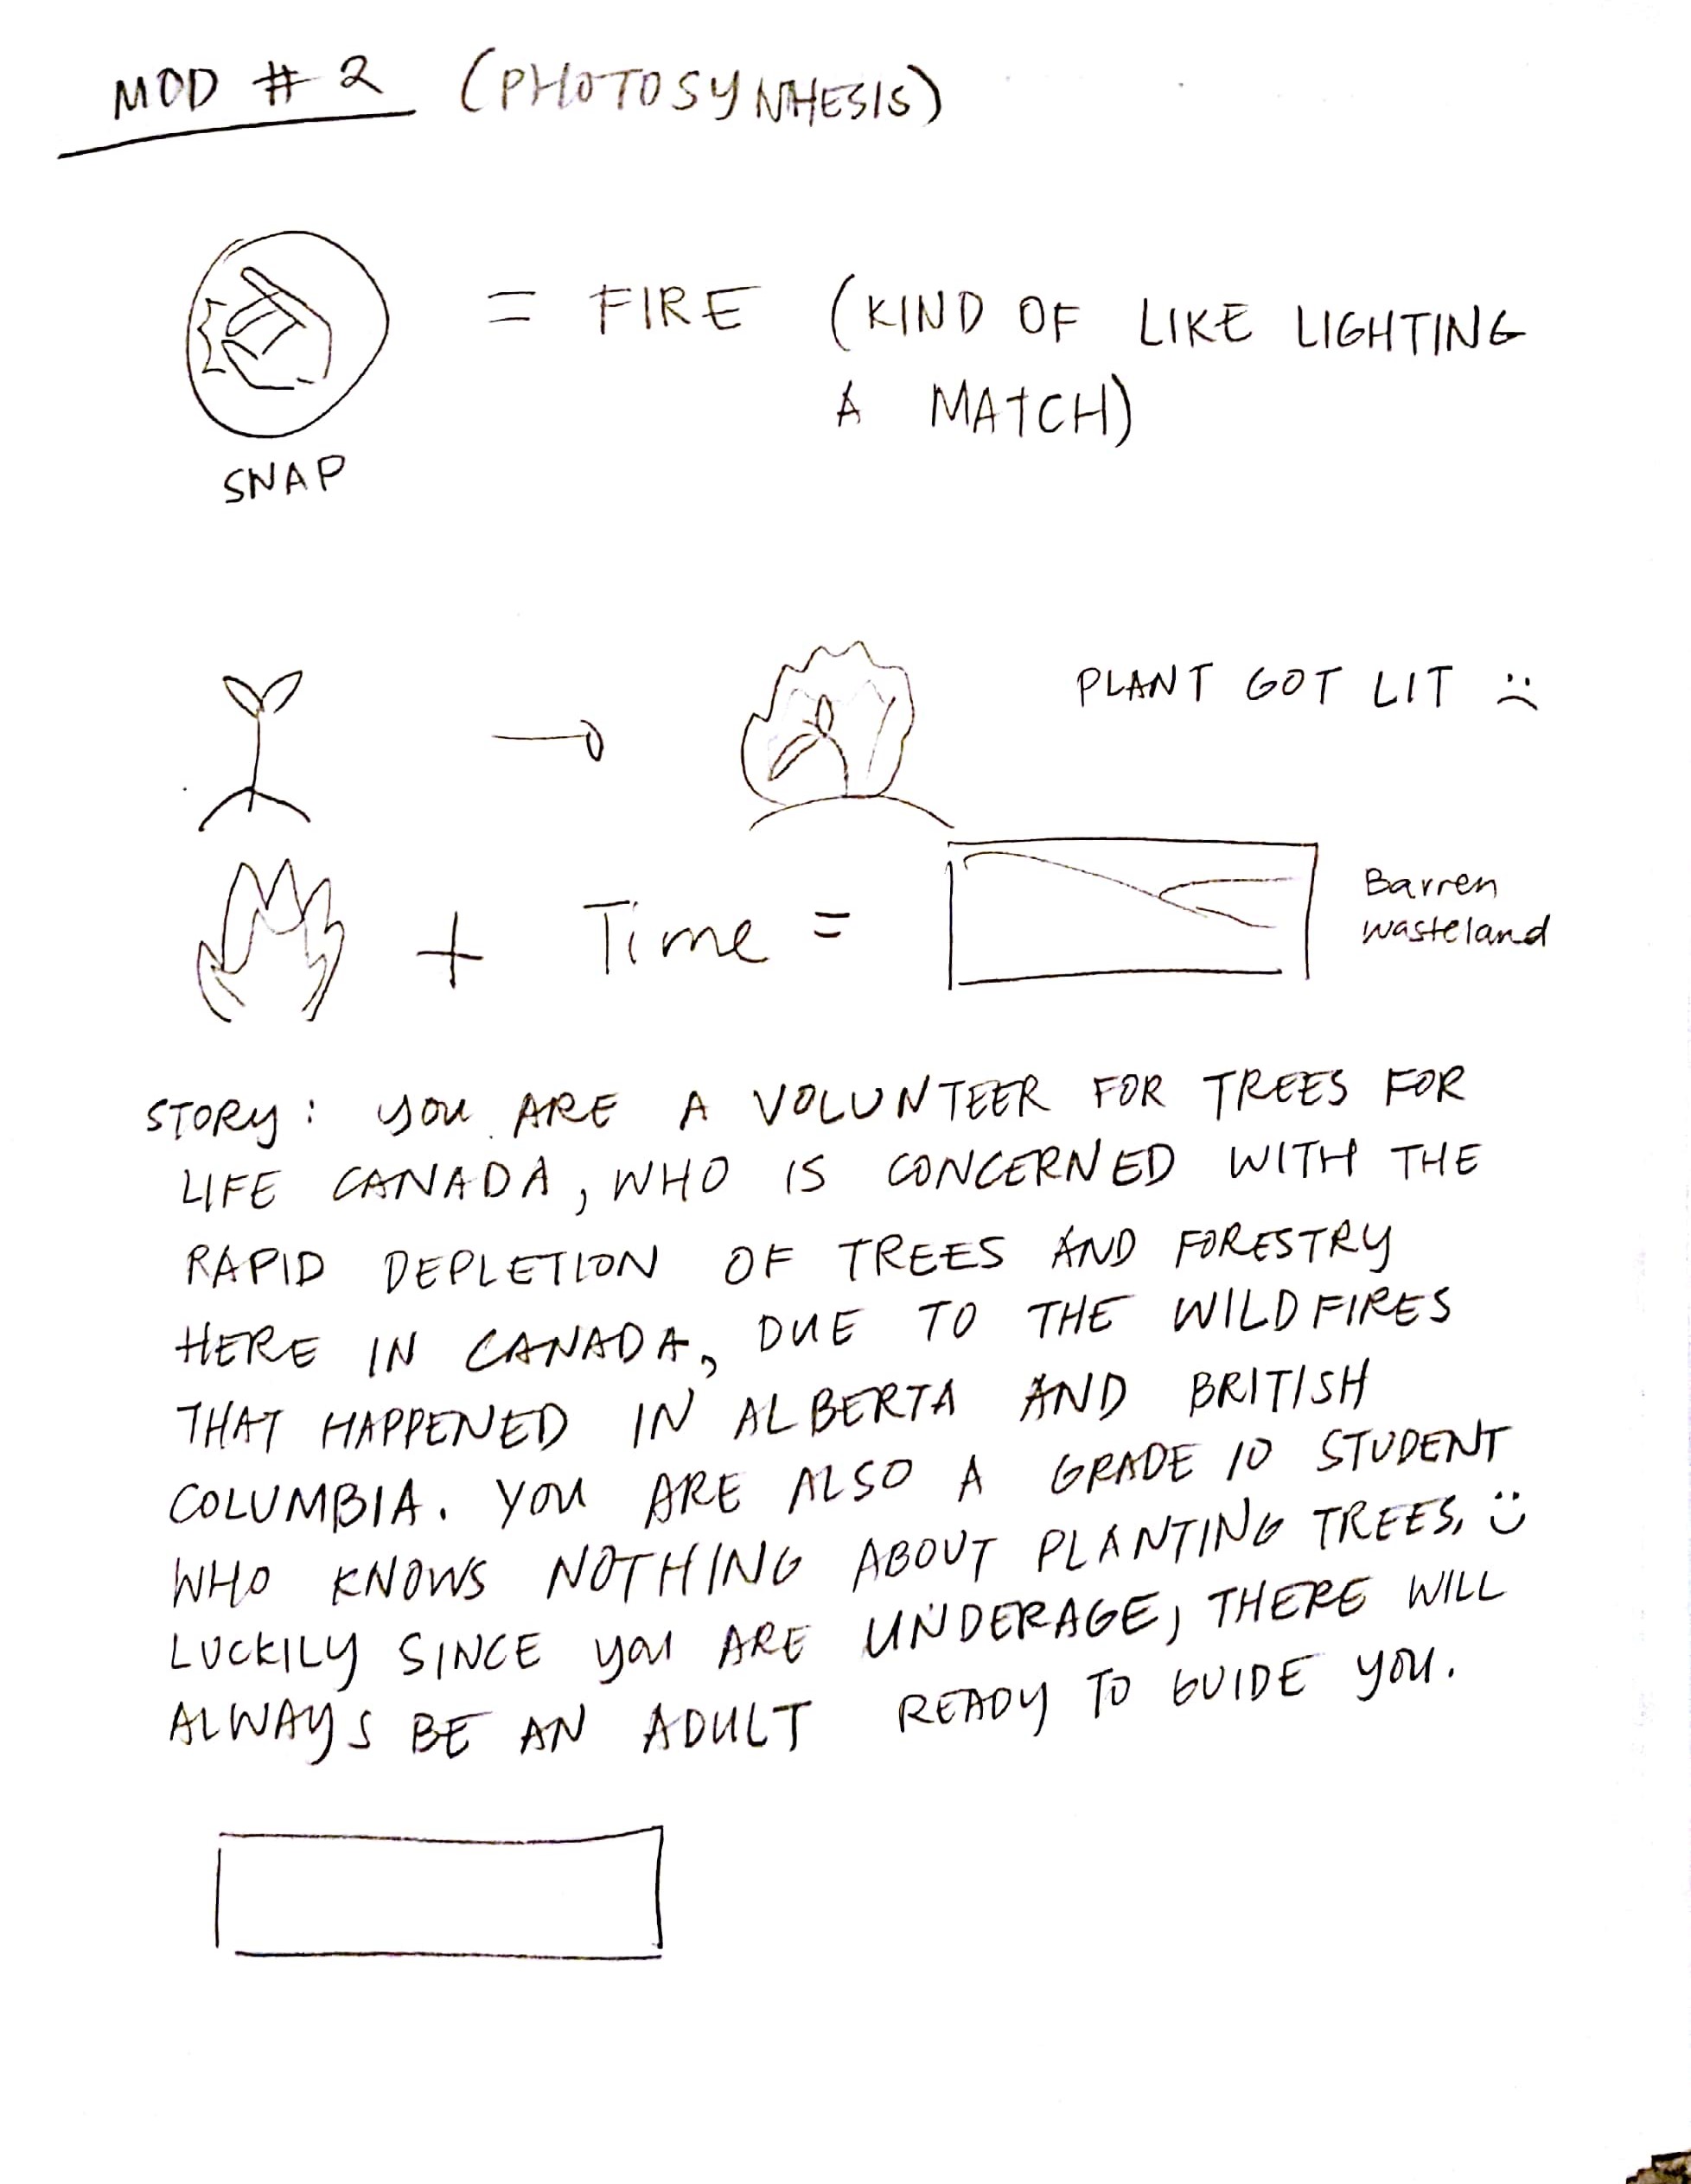 MOD # 2 (PHOTOSYNHESIS)
= FIRE (KIND OF LIKE LIGHTING
A MATCH)
SNAP
PLANT GOT LIT :(
+ Time =
Barren
wasteland
STORY: YOU ARE A VOLUNTEER FOR TREES FOR
LIFE CANADA, WHO IS CONCERNED WITH THE
RAPID DEPLETION OF TREES AND FORESTRY
HERE IN CANADA, DUE TO THE WILDFIRES
THAT HAPPENED IN ALBERTA AND BRITISH
COLUMBIA. YOU ARE ALSO A GRADE 10 STUDENT
WHO KNOWS NOTHING ABOUT PLANTING TREES. :)
LUCKILY SINCE YOU ARE UNDERAGE, THERE WILL
ALWAYS BE AN ADULT READY TO GUIDE YOU.